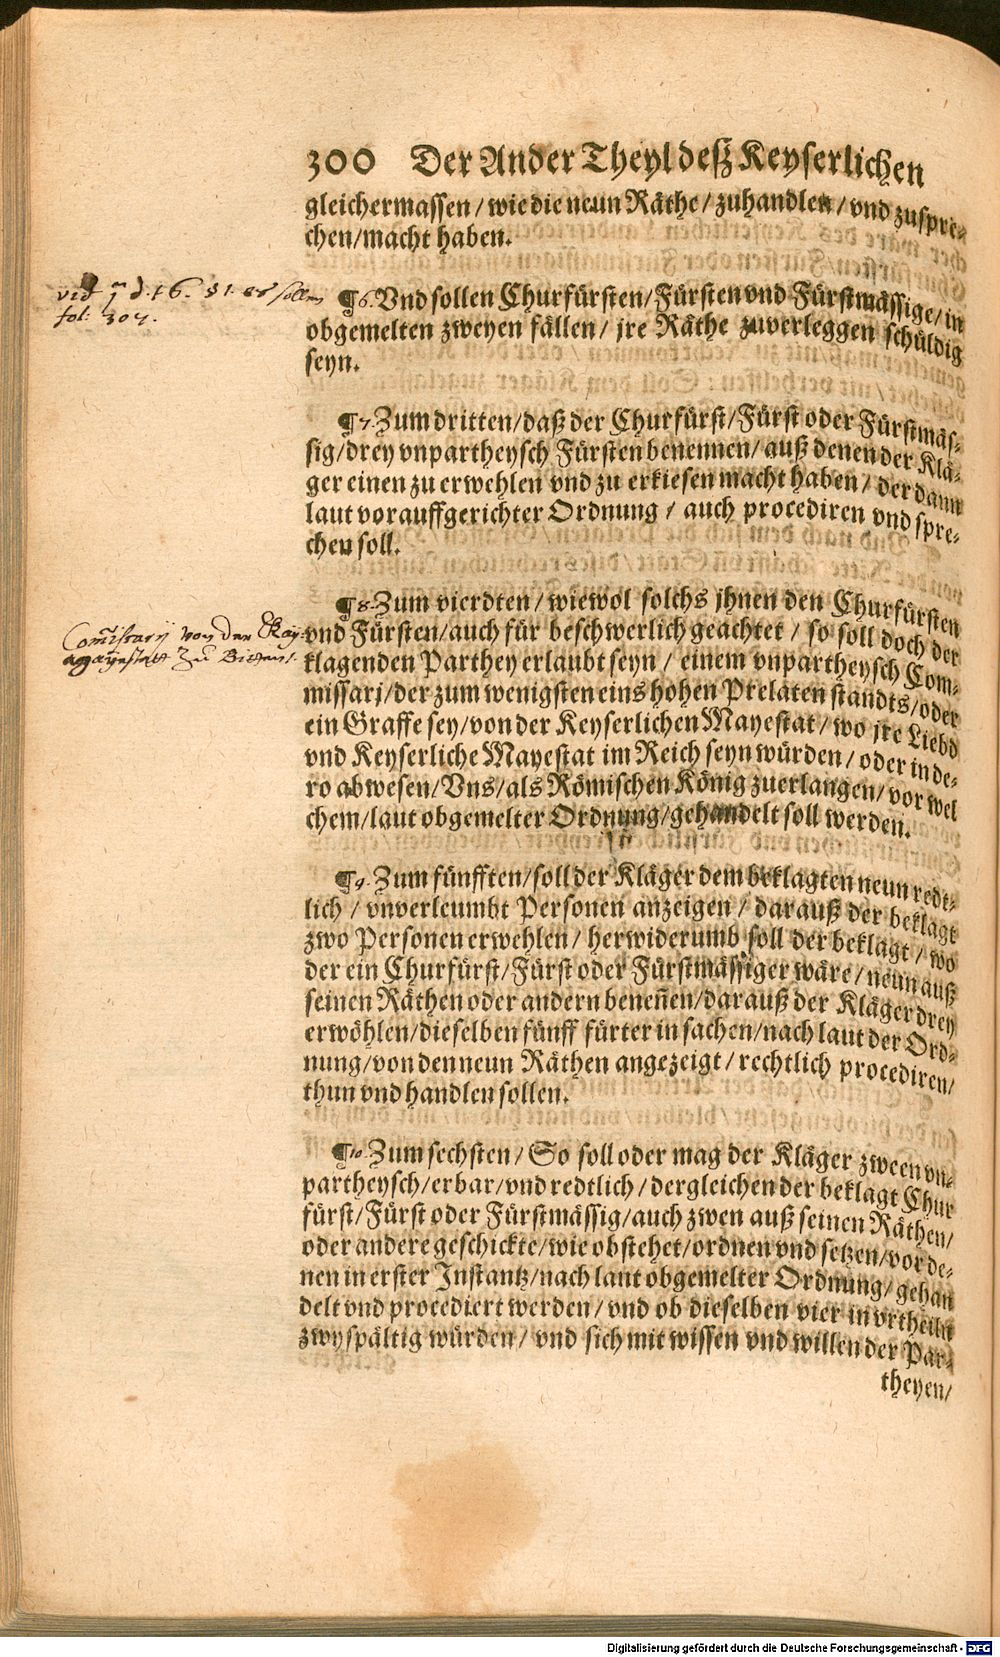 300 Der Ander Theyl deß Keyserlichen
gleichermassen / wie die neun Räthe / zuhandlen / vnd zuspre-
chen/macht haben.
vid
fol: 304.
¶ 6. Vnd sollen Churfürsten/Fürsten vnd Fürstmässige/in
obgemelten zweyen fällen/ jre Räthe zuverleggen schüldig
seyn.
¶ 7. Zum dritten/daß der Churfürst/Fürst oder Fürstmäs-
sig/drey vnpartheysch Fürsten benennen/ auß denen der Klä-
ger einen zu erwehlen vnd zu erkiesen macht haben/ der dann
laut vorauffgerichter Ordnung / auch procediren vnd spre-
chen soll.
Comissarij von der Kay:
Mayestatt zu Bitten.
¶ 8. Zum vierdten / wiewol solchs jhnen den Churfürsten
vnd Fürsten/auch für beschwerlich geachtet / so soll doch der
klagenden Parthey erlaubt seyn / einem vnpartheysch Com-
missarj/der zum wenigsten eins hohen Prelaten standts/oder
ein Graffe sey/von der Keyserlichen Mayestat / wo jre Liebd
vnd Keyserliche Mayestat im Reich seyn würden / oder in de-
ro abwesen/Vns/als Römischen König zuerlangen/ vor wel
chem/laut obgemelter Ordnung/gehandelt soll werden.
¶ 9. Zum fünfften/soll der Kläger dem beklagten neun redt-
lich / vnverleumbt Personen anzeigen / darauß der beklagt
zwo Personen erwehlen/ herwiderumb soll der beklagt / wo
der ein Churfürst/Fürst oder Fürstmässiger wäre / neun auß
seinen Räthen oder andern beneñen/darauß der Kläger drey
erwöhlen/dieselben fünff fürter in sachen/nach laut der Ord-
nung/von den neun Räthen angezeigt / rechtlich procediren/
thun vnd handlen sollen.
¶ 10. Zum sechsten / So soll oder mag der Kläger zween vn-
partheysch/erbar/vnd redtlich / dergleichen der beklagt Chur
fürst/Fürst oder Fürstmässig/auch zwen auß seinen Räthen/
oder andere geschickte/wie obstehet/ordnen vnd setzen/vor de-
nen in erster Instantz/nach laut obgemelter Ordnung/ gehan
delt vnd procediert werden / vnd ob dieselben vier in vrtheiln
zwyspältig würden / vnd sich mit wissen vnd willen der Par-
theyen/
Digitalisierung gefördert durch die Deutsche Forschungsgemeinschaft - DFG